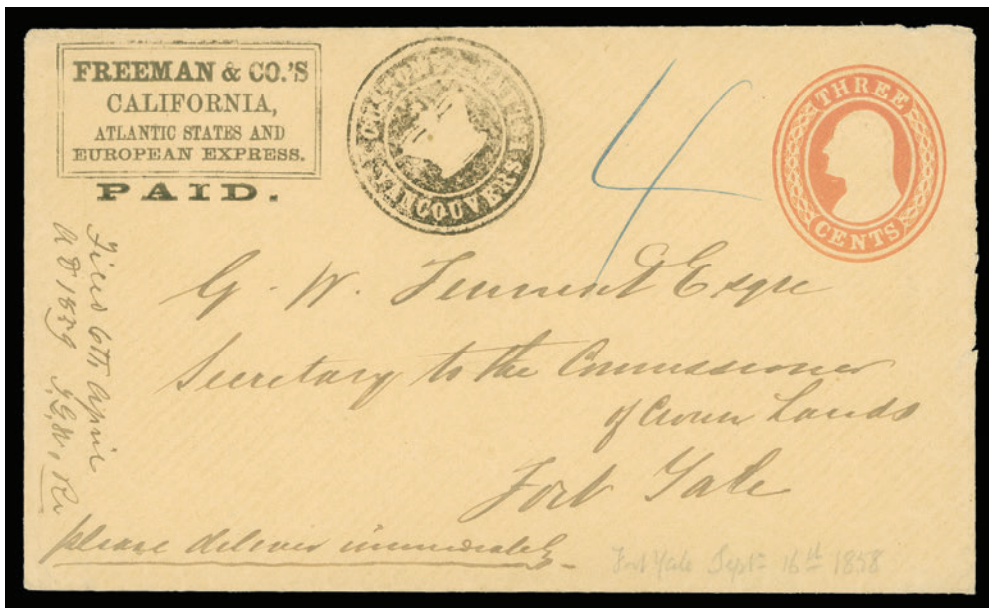 FREEMAN & CO.'S
CALIFORNIA,
ATLANTIC STATES AND
EUROPEAN EXPRESS.
PAID.
VANCOUVER
4
THREE
CENTS
G. W. Tennent Esqre
Secretary to the Commissioner
of Crown Lands
Fort Yale
please deliver immediately
Filed 6th April
AD 1859
Fort Yale Septr 16th 1858